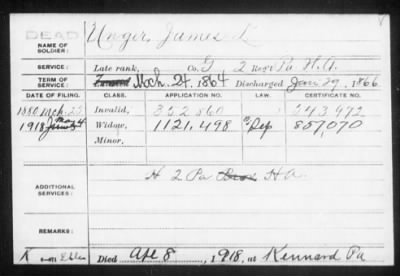 DEAD
NAME OF SOLDIER: Unger, James K
SERVICE: Late rank, Co. G, 2 Reg't Pa. H.A.
TERM OF SERVICE: Enlisted Mch. 24, 1864 Discharged Jan 29, 1866
DATE OF FILING. CLASS. APPLICATION NO. LAW. CERTIFICATE NO.
1880 Mch. 25 Invalid, 352.860 243.972
1918 May 4 Widow, 1121.498 Dep 857070
Minor,
ADDITIONAL SERVICES: H 2 Pa H.A.
REMARKS:
Died Apl 8, 1918, at Kennard Pa